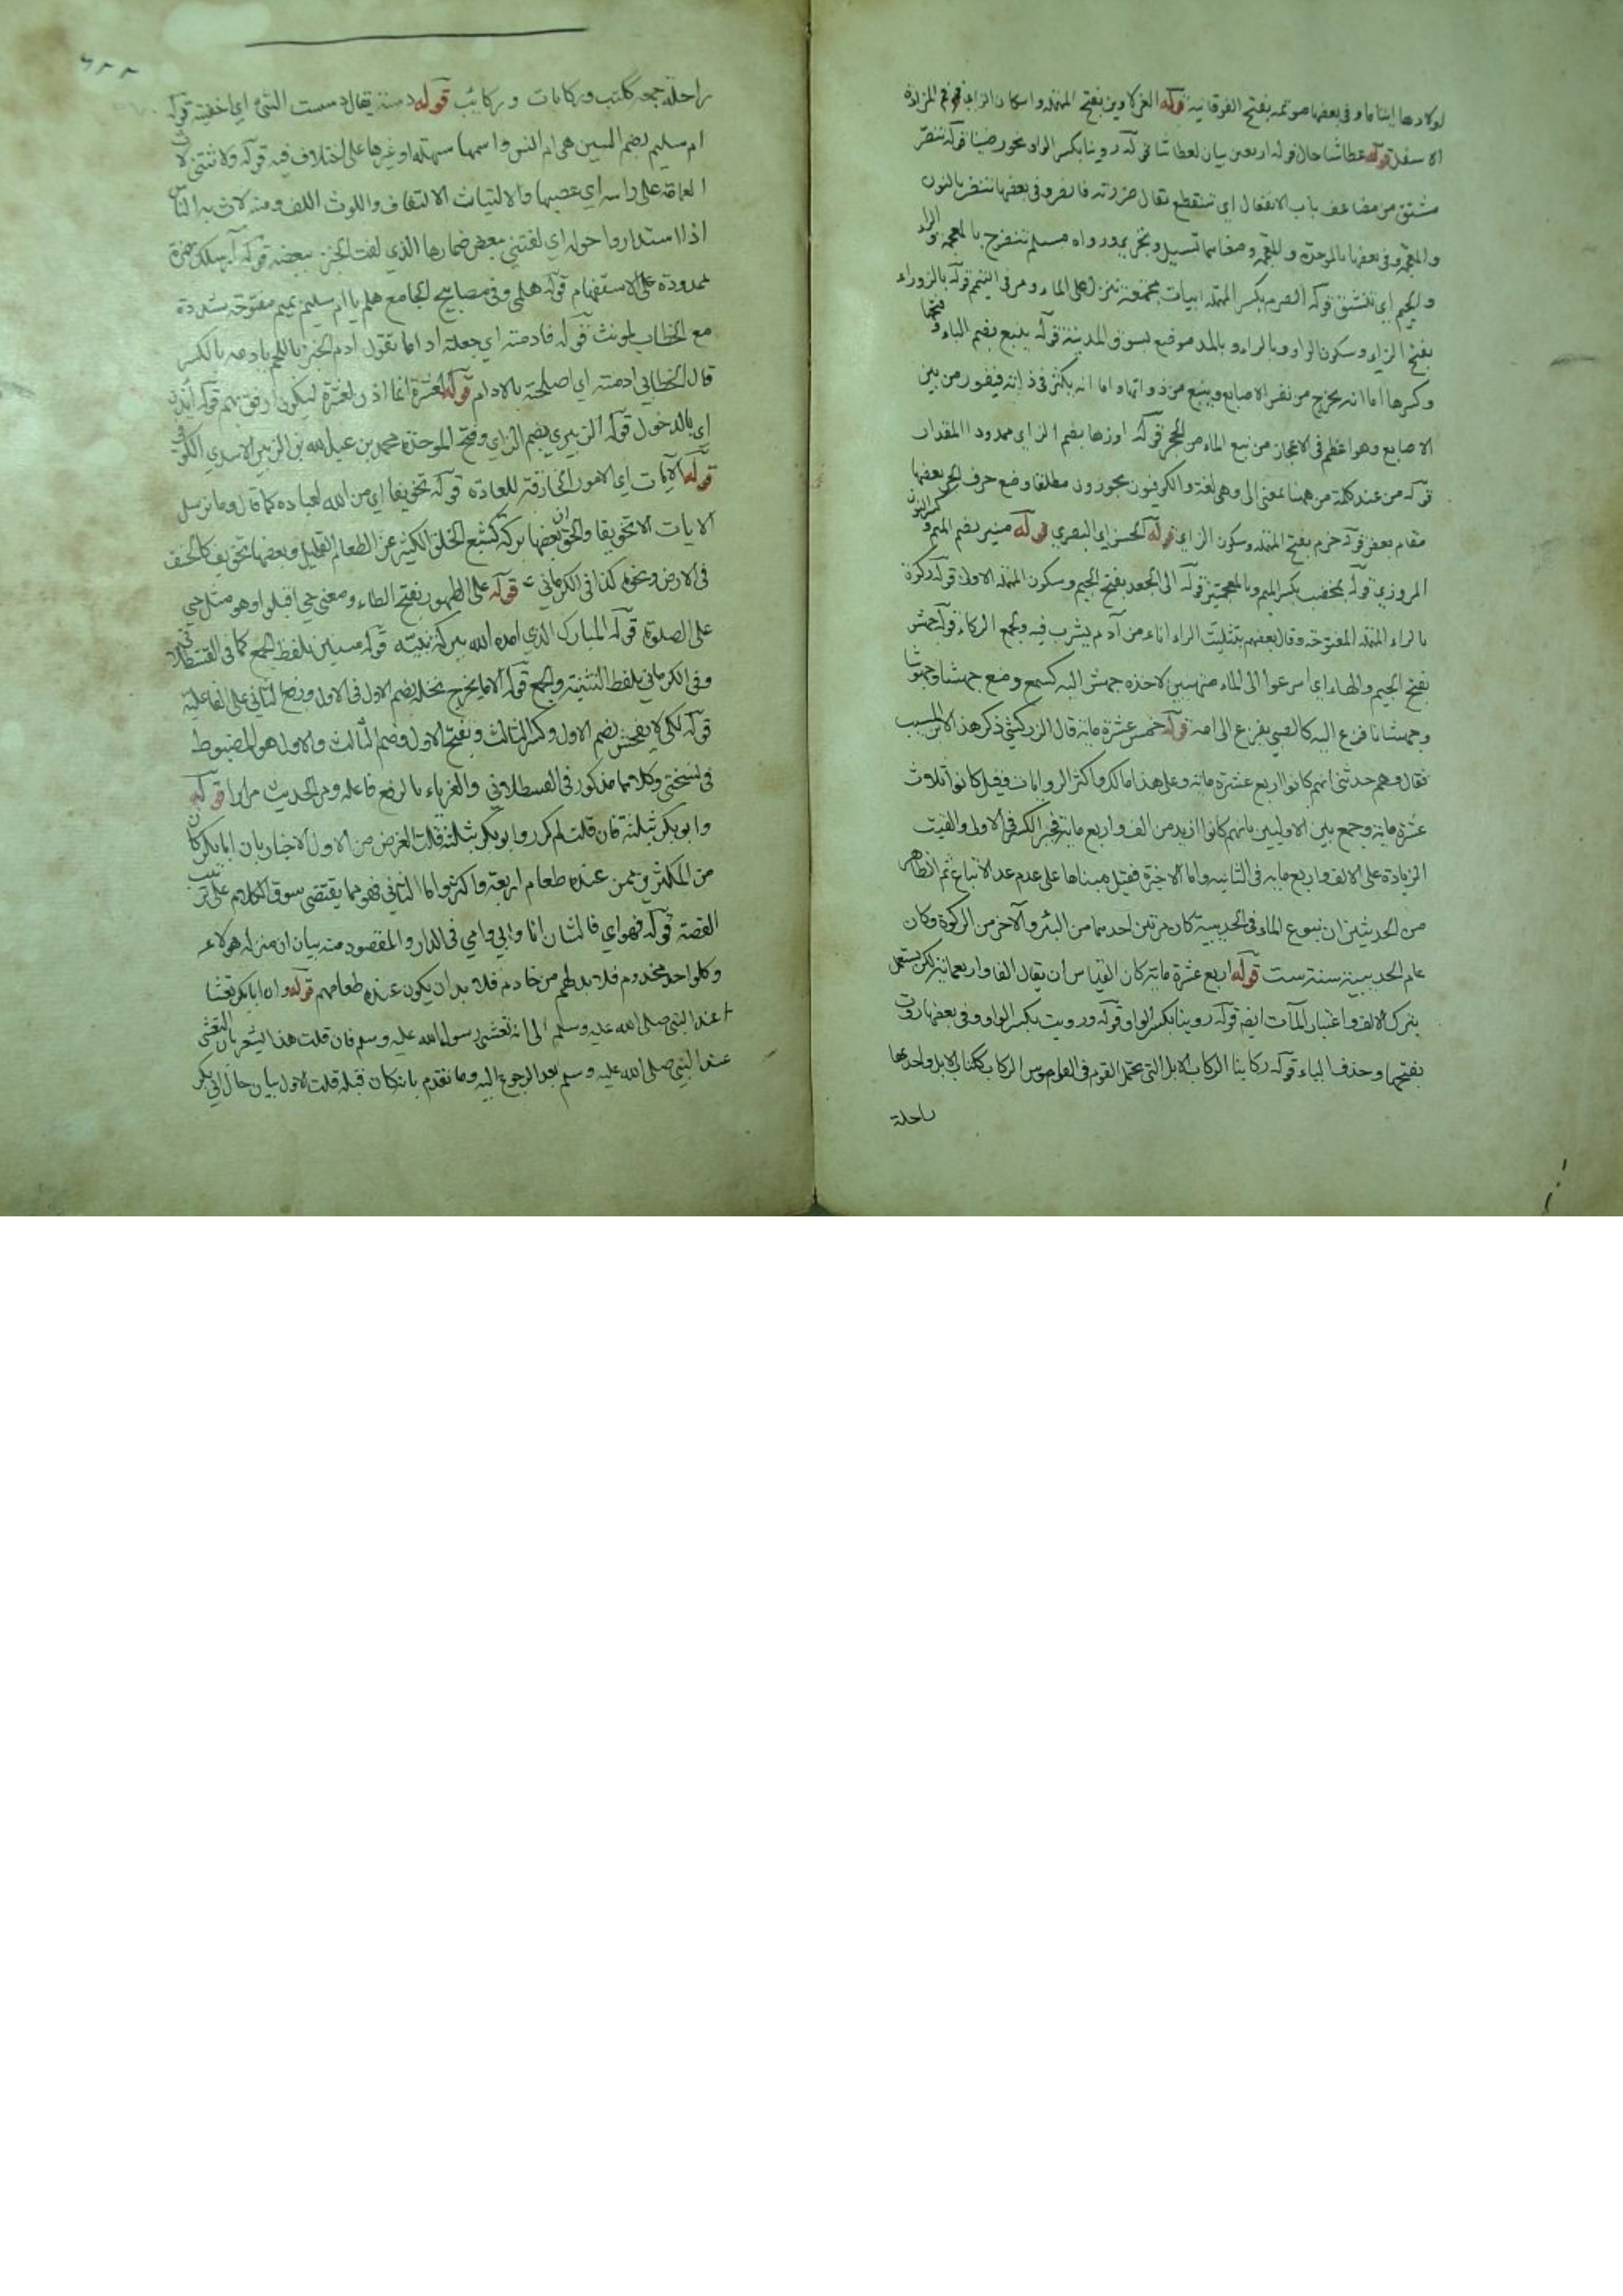 لولادها ايتاما وفي بعضها موتمه بفتح الفوقانية قوله العزلاوين بفتح المهملة واسكان الزاي فم المزادة
الاسفل قوله عطاشا حال قوله اربعين بيان لعطاشا قوله روينا بكسر الواو نحو رضينا قوله تنضر
مشتق من مضاعف باب الانفعال اي تنقطع يقال ضررته فانضر وفي بعضها تنضر بالنون
والمعجمة وفي بعضها بالموحدة والمعجمة ومعناهما تسيل ورواه مسلم تنضرج بالمعجمة والراء
والجيم اي تنشق قوله الصرم بكسر المهملة ابيات مجتمعة تنزل على الماء ومر في التيمم قوله بالزوراء
بفتح الزاي وسكون الواو وبالراء وبالمد موضع بسوق المدينة قوله ينبع بضم الباء وفتحها
وكسرها اما انه يخرج من نفس الاصابع وينبع من ذواتها واما انه يكثر في ذاته فيفور من بين
الاصابع وهو اعظم في الاعجاز من نبع الماء من الحجر قوله اوزها بضم الزاي ممدودا المقدار
قوله من عند كلمة من ههنا بمعنى الى وهي لغة والكوفيون يجوزون مطلقا وضع حرف الجر بعضها
مقام بعض قوله حزم بفتح المهملة وسكون الزاي قوله الحسن اي البصري قوله منير بضم الميم وكسر النون
المروزي قوله بمخضب بكسر الميم وبالمعجمتين قوله الى الجعد بفتح الجيم وسكون المهملة الاولى قوله ركوة
بالراء المهملة المفتوحة وقال بعضهم بتثليث الراء اناء من آدم يشرب فيه والجمع الركاء قوله جهش
بفتح الجيم والهاء اي اسرعوا الى الماء متهيئين لاخذه جهش اليه كسمع ومنع جهشا وجهوشا
وجهشانا فزع اليه كالصبي يفزع الى امه قوله خمس عشرة مائة قال الزركشي ذكر هذا لابن المسيب
فقال وهم حدثني انهم كانوا اربع عشرة مائة وعلى هذا مالك واكثر الروايات وقيل كانوا ثلاث
عشرة مائة وجمع بين الاوليين بانهم كانوا ازيد من الف واربع مائة فجبر الكسر في الاولى والغيت
الزيادة على الالف واربع مايه في الثانيه واما الاخيرة فقيل مبناها على عدم عد الاتباع ثم الظاهر
من الحديثين ان نبوع الماء في الحديبية كان مرتين احدهما من البئر والآخر من الركوة وكان
عام الحديبية سنة ست قوله اربع عشرة مائة كان القياس ان يقال الفا واربعمائة لكن يستعمل
بترك الالف واعتبار المآت ايضا قوله روينا بكسر الواو قوله ورويت بكسر الواو وفي بعضها روت
بفتحها وحذف الياء قوله ركابنا الركاب الابل التي تحمل القوم في القاموس الركاب ككتاب الابل واحدتها
راحلة
راحلة جمعه ككتب وركابات وركايب قوله دسته يقال دسست الشئ اي اخفيته قوله
ام سليم بضم السين هي ام انس واسمها سهلة او غيرها على اختلاف فيه قوله ولاثتني لاث
العمامة على راسه اي عصبها والالتياث الالتفاف واللوث اللف ومنه لاث به الناس
اذا استداروا حوله اي لفتني ببعض خمارها الذي لفت الخبز ببعضه قوله آرسلك بهمزة
ممدودة على الاستفهام قوله هلمي وفي مصابيح الجامع هلم يا ام سليم بميم مفتوحة مشددة
مع الخطاب لمونث قوله فادمته اي جعلته اداما تقول ادم الخبز باللحم يادمه بالكسر
قال الخطابي ادمته اي اصلحته بالادام قوله لعشرة انما اذن لعشرة ليكون ارفق بهم قوله ائذن
اي بالدخول قوله الزبيري بضم الزاي وفتح الموحدة محمد بن عبد الله بن الزبير الاسدي الكوفي
قوله الآيات اي الامور الخارقة للعادة قوله تخويفا اي من الله لعباده كما قال وما نرسل
الايات الا تخويفا والحق ان بعضها بركة كشبع الخلق الكثير عن الطعام القليل وبعضها تخويف كالخسف
في الارض ونحوه كذا في الكرماني قوله على الطهور بفتح الطاء ومعنى حي اقبلوا وهو مثل حي
على الصلوة قوله المبارك الذي امده الله ببركة نبيه قوله مسنين بلفظ الجمع كما في القسطلاني
وفي الكرماني بلفظ التثنية والجمع قوله الا ما يخرج نخله بضم الاول في الاول ورفع الثاني على الفاعلية
قوله لكي لا يفحش بضم الاول وكسر الثالث وبفتح الاول وضم الثالث والاول هو المضبوط
في نسختي وكلاهما مذكور في القسطلاني والغرماء بالرفع فاعله ومر الحديث مرارا قوله
وابوبكر ثلثة فان قلت لم كرر وابوبكر بثلثة قلت الغرض من الاول الاخبار بان ابابكر كان
من المكثرين ممن عنده طعام اربعة واكثر واما الثاني فهو مما يقتضي سوق الكلام على ترتيب
القصة قوله فهو اي فالشان انا وابي وامي في الدار والمقصود منه بيان ان منزله هولاء
وكل واحد مخدوم فلا بد لهم من خادم فلا بد ان يكون عنده طعامهم قوله وان ابابكر تعشا
عند النبي صلى الله عليه وسلم الى انه تعشى رسول الله عليه وسلم فان قلت هذا يشعر بان التعشي
عند النبي صلى الله عليه وسلم بعد الرجوع اليه وما تقدم بانه كان قبله قلت الاول بيان حال ابي بكر